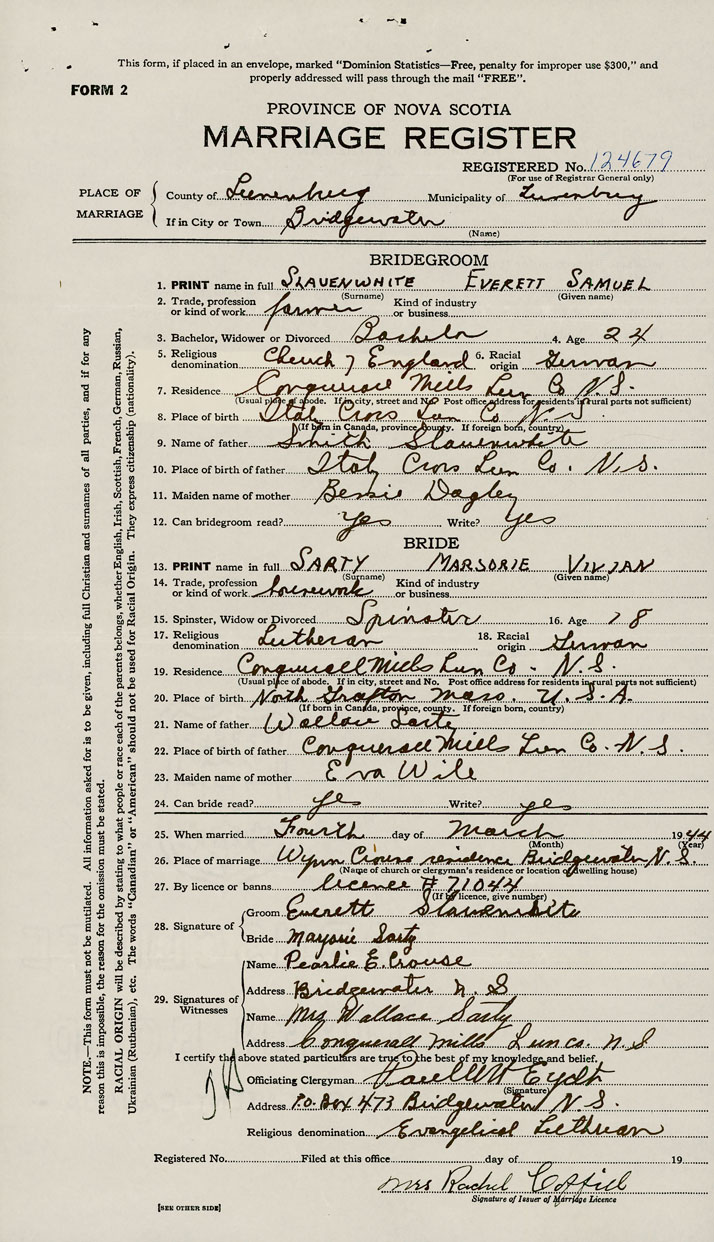 This form, if placed in an envelope, marked "Dominion Statistics—Free, penalty for improper use $300," and
properly addressed will pass through the mail "FREE".
FORM 2
PROVINCE OF NOVA SCOTIA
MARRIAGE REGISTER
REGISTERED No. 124679
(For use of Registrar General only)
PLACE OF MARRIAGE
County of Lunenburg Municipality of Lunenburg
If in City or Town Bridgewater
(Name)
BRIDEGROOM
1. PRINT name in full SLAUENWHITE EVERETT SAMUEL
(Surname) (Given name)
2. Trade, profession or kind of work farmer Kind of industry or business
3. Bachelor, Widower or Divorced Bachelor 4. Age 24
5. Religious denomination Church of England 6. Racial origin German
7. Residence Conquerall Mills Lun Co N.S.
(Usual place of abode. If in city, street and No. Post office address for residents in rural parts not sufficient)
8. Place of birth Italy Cross Lun Co N.S.
(If born in Canada, province, county. If foreign born, country)
9. Name of father Smith Slauenwhite
10. Place of birth of father Italy Cross Lun Co. N.S.
11. Maiden name of mother Bessie Dagley
12. Can bridegroom read? Yes Write? Yes
BRIDE
13. PRINT name in full SARTY MARJORIE VIVIAN
(Surname) (Given name)
14. Trade, profession or kind of work housework Kind of industry or business
15. Spinster, Widow or Divorced Spinster 16. Age 18
17. Religious denomination Lutheran 18. Racial origin German
19. Residence Conquerall Mills Lun Co - N.S.
(Usual place of abode. If in city, street and No. Post office address for residents in rural parts not sufficient)
20. Place of birth North Grafton Mass. U.S.A.
(If born in Canada, province, county. If foreign born, country)
21. Name of father Wallace Sarty
22. Place of birth of father Conquerall Mills Lun Co. N.S.
23. Maiden name of mother Eva Wile
24. Can bride read? yes Write? yes
25. When married Fourth day of March 1944
(Month) (Year)
26. Place of marriage Wynn Crouse residence Bridgewater N.S.
(Name of church or clergyman's residence or location of dwelling house)
27. By licence or banns licence # 71044
(If by licence, give number)
28. Signature of
Groom Everett Slauenwhite
Bride Marjorie Sarty
29. Signatures of Witnesses
Name Pearlie E. Crouse
Address Bridgewater N.S
Name Mrs Wallace Sarty
Address Conquerall Mills Lun co. N S
I certify the above stated particulars are true to the best of my knowledge and belief.
Officiating Clergyman Eydt
(Signature)
Address P.O. Box 473 Bridgewater N.S.
Religious denomination Evangelical Lutheran
Registered No. Filed at this office day of 19
Mrs Rachel
Signature of Issuer of Marriage Licence
[SEE OTHER SIDE]
NOTE.—This form must not be mutilated. All information asked for is to be given, including full Christian and surnames of all parties, and if for any
reason this is impossible, the reason for the omission must be stated.
RACIAL ORIGIN will be described by stating to what people or race each of the parents belongs, whether English, Irish, Scottish, French, German, Russian,
Ukrainian (Ruthenian), etc. The words "Canadian" or "American" should not be used for Racial Origin. They express citizenship (nationality).